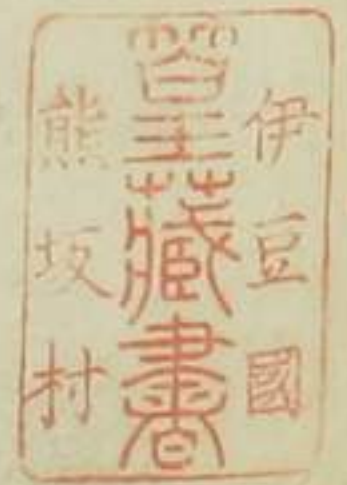 伊豆國
篁藏書
熊坂村